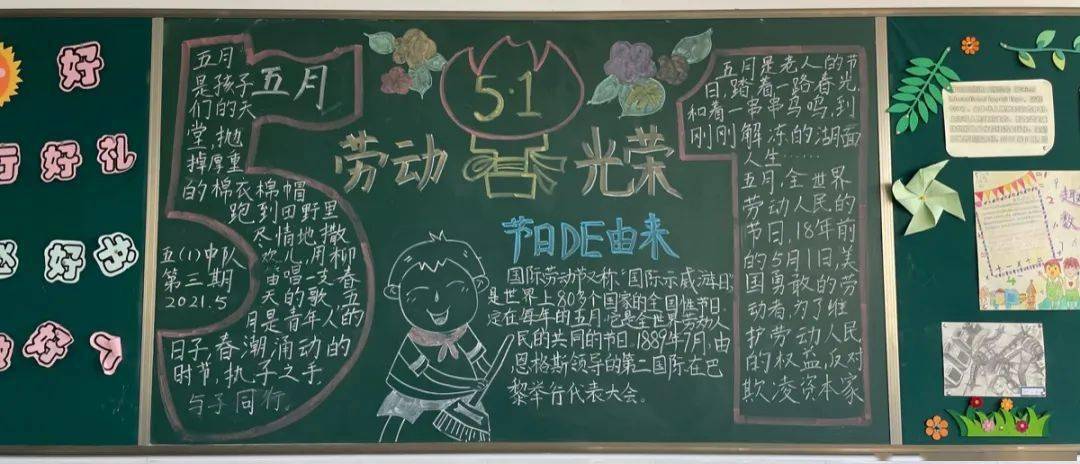 好
好礼
好书
好人
五月
五月
是孩子
们的天
堂,抛
掉厚重
的棉衣棉帽
跑到田野里
尽情地撒
欢儿,用柳
笛唱一支春
天的歌。五
月是青年人的
日子,春潮涌动的
时节,执子之手,
与子同行。
五(1)中队
第三期
2021.5
5·1
劳动
光荣
节日DE由来
国际劳动节又称"国际示威游日"
是世界上80多个国家的全国性节日.
定在每年的五月.它是全世界劳动人
民的共同的节日.1889年7月,由
恩格斯领导的第二国际在巴
黎举行代表大会。
五月是老人的节
日,踏着一路春光,
和着一串串鸟鸣,到
刚刚解冻的湖面
人生……
五月,全世界
劳动人民的
节日,18年前
的5月1日,美
国勇敢的劳
动者,为了维
护劳动人民
的权益,反对
欺凌资本家
趣
数